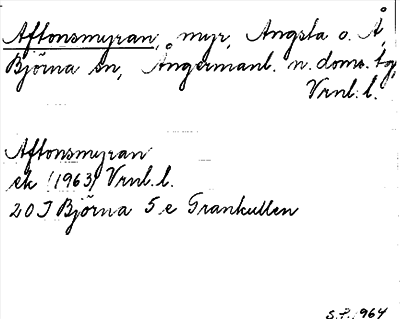 Aftonsmyran, myr, Angsta o. Å,
Björna sn, Ångermanl. n. doms. tg,
Vrnl. l.
Aftonsmyran
ek (1963) Vrnl. l.
20 J Björna 5 e Grankullen
S.L. 1964